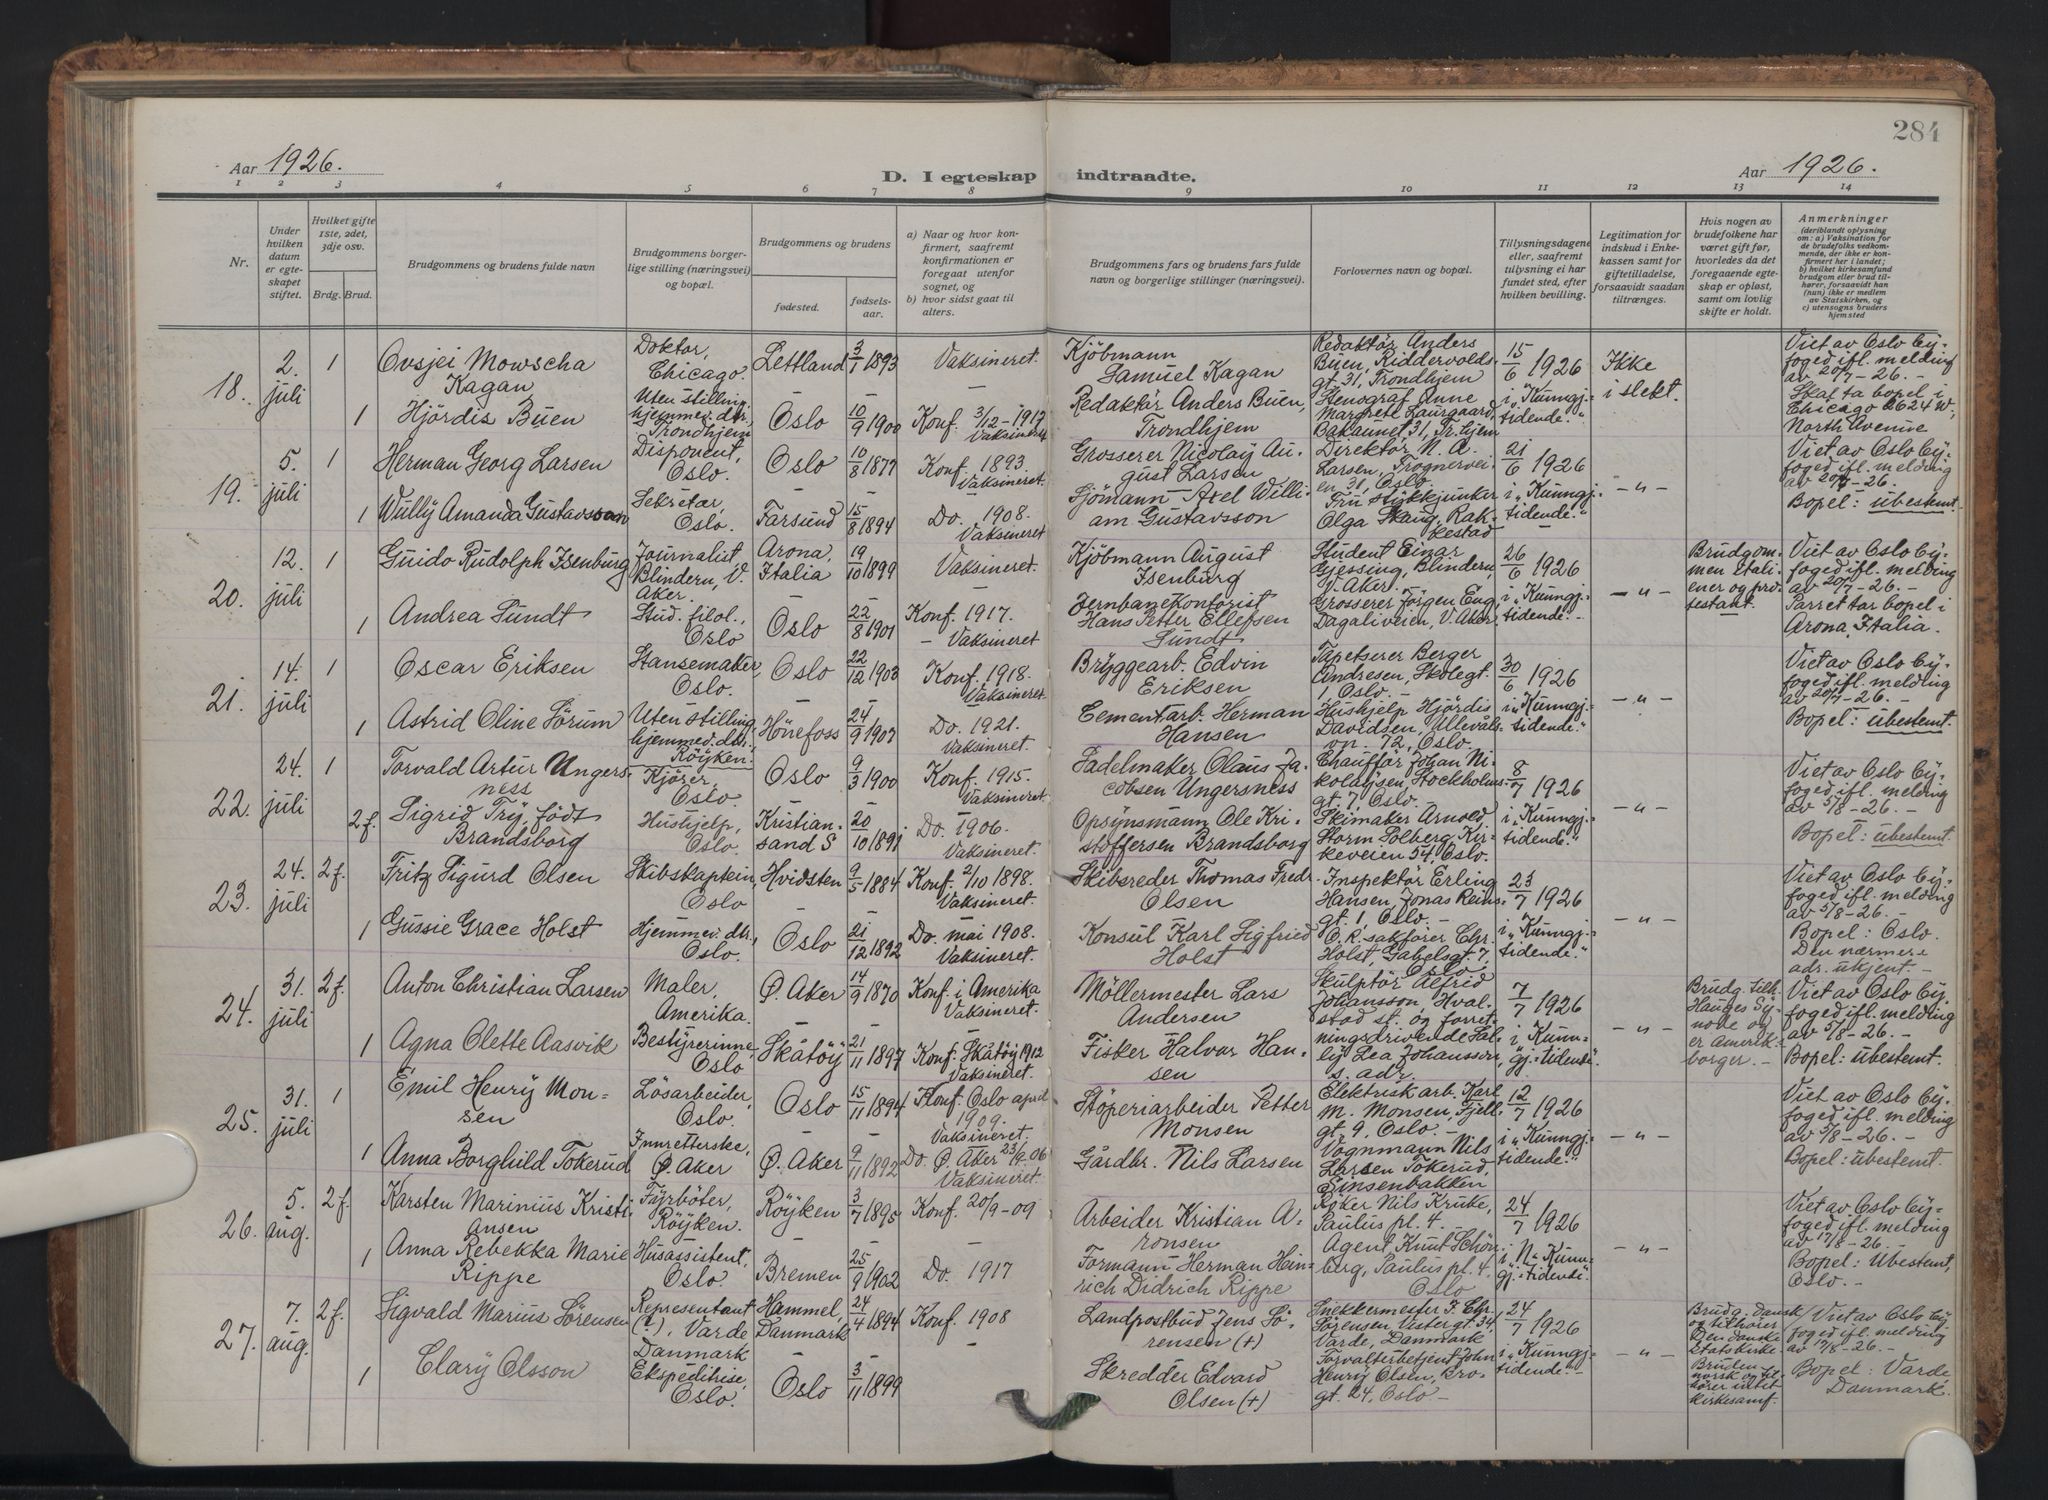 284
Aar 1926.
D. I egteskap indtraadte.
Aar 1926.
1 2 3 4 5 6 7 8 9 10 11 12 13 14
Nr.
Under hvilken datum er egte-skapet stiftet.
Hvilket gifte 1ste, 2det, 3dje osv.
Brdg. Brud.
Brudgommens og brudens fulde navn
Brudgommens borger-lige stilling (næringsvei) og bopæl.
Brudgommens og brudens
fødested.
fødsels-aar.
a) Naar og hvor kon-firmert, saafremt konfirmationen er foregaat utenfor sognet, og
b) hvor sidst gaat til alters.
Brudgommens fars og brudens fars fulde navn og borgerlige stillinger (næringsvei).
Forlovernes navn og bopæl.
Tillysningsdagene eller, saafremt tillysning ei har fundet sted, efter hvilken bevilling.
Legitimation for indskud i Enke-kassen samt for giftetilladelse, forsaavidt saadan tiltrænges.
Hvis nogen av brudefolkene har været gift før, hvorledes da det foregaaende egte-skap er opløst, samt om lovlig skifte er holdt.
Anmerkninger (deriblandt oplysning om: a) Vaksination for de brudefolks vedkom-mende, der ikke er kon-firmert her i landet; b) hvilket kirkesamfund brudgom eller brud til-hører, forsaavidt han (hun) ikke er medlem av Statskirken, og c) utensogns bruders hjemsted
18. 2. juli 1 Ovsjei Mowscha Kagan
Doktor, Chicago. Lettland 3/1 1893 Vaksineret.
Kjöbmann Samuel Kagan
Redaktör Anders Buen, Riddervolds-gt. 31, Trondhjem
15/6 1926 i „Kunngj.-tidende."
Ikke i slekt.
Viet av Oslo by-foged ifl. melding av 20/7-26. -
Skal ta bopel i Chicago 2624 W, North Avenue
1 Hjördis Buen
Uten stilling hjemmev. dtr, Trondhjem Oslo 10/9 1900 Konf. 3/12-1917 Vaksineret
Redaktör Anders Buen, Trondhjem
Stensgraf Anne Margrete Laurgaard, Bakaunet 31, Tr.hjem
19. 5. juli 1 Herman Georg Larsen
Disponent, Oslo. Oslo 10/8 1877 Konf. 1893. Vaksineret.
Grosserer Nicolay Au-gust Larsen
Direktör N. A. Larsen, Frognervei-en 31, Oslo.
21/6 1926 i „Kunngj.-tidende."
- „ -
Viet av Oslo by-foged ifl. melding av 20/7-26.
Bopel: ubestemt.
1 Wully Amanda Gustavsson
Sekretær, Oslo. Farsund 15/8 1894 Do. 1908. Vaksineret
Sjömann Axel Willi-am Gustavsson
Fru stykkjunker Olga Skaug, Rak-kestad
20. 12. juli 1 Guido Rudolph Isenburg
Journalist, Blindern, V. Aker. Arona, Italia 19/10 1899 Vaksineret.
Kjöbmann August Isenburg
Student Einar Gjessing, Blindern, V. Aker.
26/6 1926 i „Kunngj.-tidende."-
- „ -
Brudgom-men itali-ener og pro-testant.
Viet av Oslo by-foged ifl. melding av 20/7-26. -
Parret tar bopel i Arona, Italia.
1 Andrea Sundt
Stud. filol., Oslo Oslo 22/8 1901 Konf. 1917. - Vaksineret
Jernbanekontorist Hans Petter Ellefsen Sundt
Grosserer Jörgen Eng, Dagaliveien, V. Aker,
21. 14. juli 1 Oscar Eriksen
Stansemaker, Oslo. Oslo 22/12 1903 Konf. 1918. Vaksineret.
Bryggearb. Edvin Eriksen
Tapetserer Berger Andresen, Skolegt. 1, Oslo. -
30/6 1926 i „Kunngj.-tidende."
- „ -
Viet av Oslo by-foged ifl. melding av 20/7-26. -
Bopel: ubestemt.
1 Astrid Oline Sörum
Uten stilling hjemmev. dtr., Röyken. Hönefoss 24/9 1907 Do. 1921. Vaksineret.
Cementarb. Herman Hansen
Hushjelp Hjördis Davidsen, Ullevåls-vn. 72, Oslo.
22. 24. juli 1 Torvald Artur Ungers-ness
Kjörer, Oslo. Oslo 9/3 1900 Konf. 1915. Vaksineret.
Sadelmaker Olaus Ja-cobsen Ungersness
Chauffør Johan Ni-kolaysen, Stockholms-gt. 7, Oslo.
8/7 1926 i „Kunngj.-tidende."
- „ -
Viet av Oslo by-foged ifl. melding av 5/8-26. -
Bopel: ubestemt.
2 f. Sigrid Try, födt Brandsborg
Hushjelp, Oslo. Kristian-sand S 20/10 1891 Do. 1906. Vaksineret.
Opsynsmann Ole Kri-stoffersen Brandsborg
Skimaker Arnold Storm Solberg, Kir-keveien 54, Oslo.
23. 24. juli 2 f. Fritz Sigurd Olsen
Skibskaptein, Oslo Hvidsten 9/5 1884 Konf. 2/10 1898. Vaksineret.
Skibsreder Thomas Fredr. Olsen
Inspektör Erling Hansen, Jonas Reins-gt. 1, Oslo. -
23/7 1926 i „Kunngj.-tidende."
- „ -
Viet av Oslo by-foged ifl. melding av 5/8-26. -
Bopel: Oslo. Den nærmere adr. ukjent. -
1 Gussie Grace Holst
Hjemmev. dtr., Oslo. Oslo 21/12 1892 Do. mai 1908. Vaksineret.
Konsul Karl Sigfried Holst
O. R. sakförer Chr. Holst, Gabelsgt. 7, Oslo
24. 31. juli 2 f. Anton Christian Larsen
Maler, Amerika. Ö. Aker 14/9 1870 Konf. i Amerika Vaksineret.
Möllermester Lars Andersen
Skulptör Alfred Johansson, Hval-stad st. og forret-ningsdrivende Sal-ly Lea Johansson, s. adr.
7/7 1926 i „Kunn-gj.-tidende".
- „ -
Brudg. tilh. Hauges Sy-node og er Amerik. borger. -
Viet av Oslo by-foged ifl. melding av 5/8-26. -
Bopel: ubestemt.
1 Agna Olette Aasvik
Bestyrerinne, Oslo Skåtöy 21/11 1897 Konf. Skåtöy 1912 Vaksineret.
Fisker Halvor Han-sen
25. 31. juli 1 Emil Henry Mon-sen
Lösarbeider, Oslo. Oslo 15/11 1894 Konf. Oslo april 1909. Vaksineret.
Stöperiarbeider Petter Monsen
Elektrisk arb. Karl M. Monsen, Fjell-gt. 9, Oslo. -
12/7 1926 i „Kunngj.-tidende."
- „ -
Viet av Oslo by-foged ifl. melding av 5/8-26. -
Bopel: ubestemt.
1 Anna Borghild Tokerud
Innretterske, Ö. Aker Ö. Aker 9/11 1892 Do. Ö. Aker 23/9-06 Vaksineret.
Gårdbr. Nils Larsen
Vognmann Nils Larsen Tokerud, Sinsenbakken
26. 5. aug. 2 f. Karsten Marinius Kristi-ansen
Fyrböter, Röyken. Röyken 3/7 1895 Konf. 20/9-09
Arbeider Kristian A-ronsen
Röker Nils Kruke, Paulus pl. 4. -
24/7 1926 i N. Kunn-gj.-tidende".
- „ -
Viet av Oslo by-foged ifl. melding av 17/8-26. -
Bopel: Ubestemt, Oslo. -
1 Anna Rebekka Marie Rippe
Husassistent, Oslo. Bremen 25/9 1902 Do. 1917
Formann Herman Hein-rich Didrich Rippe
Agent Knut Schön-berg, Paulus pl. 4, Oslo
27. 7. aug. 2 f. Sigvald Marius Sörensen
Representant (?), Varde Danmark Hammel, Danmark 24/4 1894 Konf. 1908
Landpostbud Jens Sö-rensen (+)
Snekkermester J. Chr. Sörensen, Vestergt. 34, Varde, Danmark
24/7 1926 i „Kunngj.-tidende."-
- „ -
Brudg. dansk og tilhörer Den danske Statskirke Bruden norsk og til-hörer intet kirkesamf.
Viet av Oslo by-foged ifl. melding av 17/8-26. -
Bopel: Varde, Danmark.
1 Clary Olsson
Ekspeditrise, Oslo. Oslo 3/11 1899 -
Skredder Edvard Olsen (+)
Forvalterbetjent John Henry Olsen, Kro-gt. 24, Oslo -